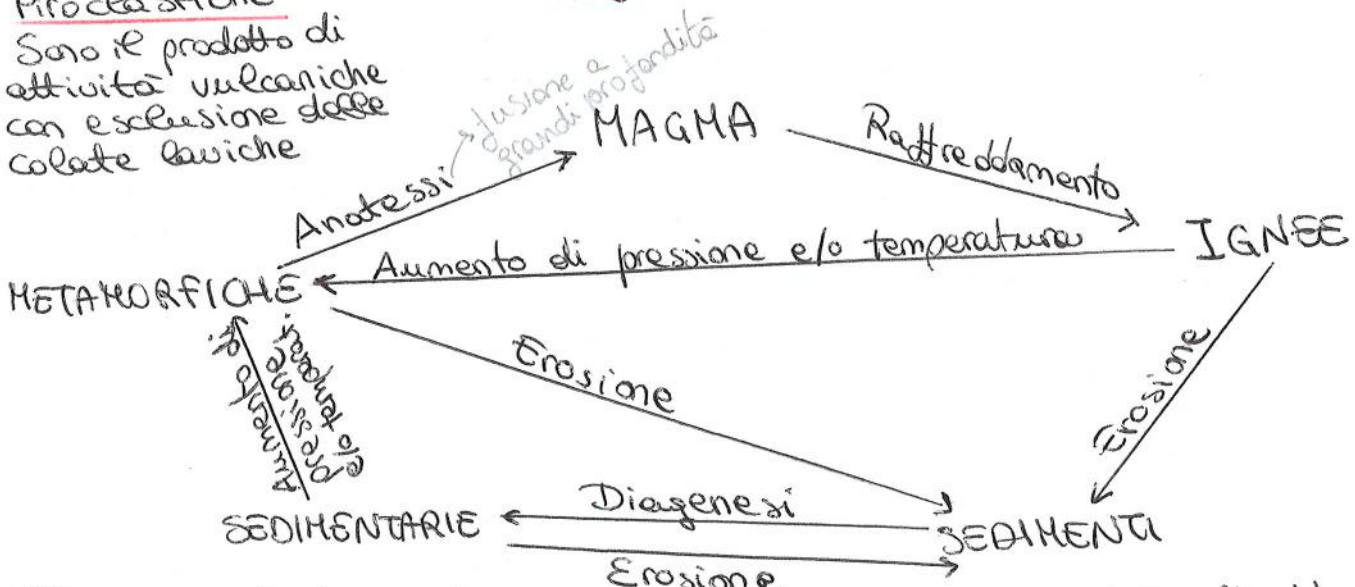 Piroclastiche
Sono il prodotto di
attività vulcaniche
con esclusione delle
colate laviche
fusione a
grandi profondità
MAGMA
Raffreddamento
Anatessi
IGNEE
Aumento di pressione e/o temperatura
METAMORFICHE
Aumento di
pressione
e/o temperat.
Erosione
Erosione
Diagenesi
SEDIMENTARIE
SEDIMENTI
Erosione